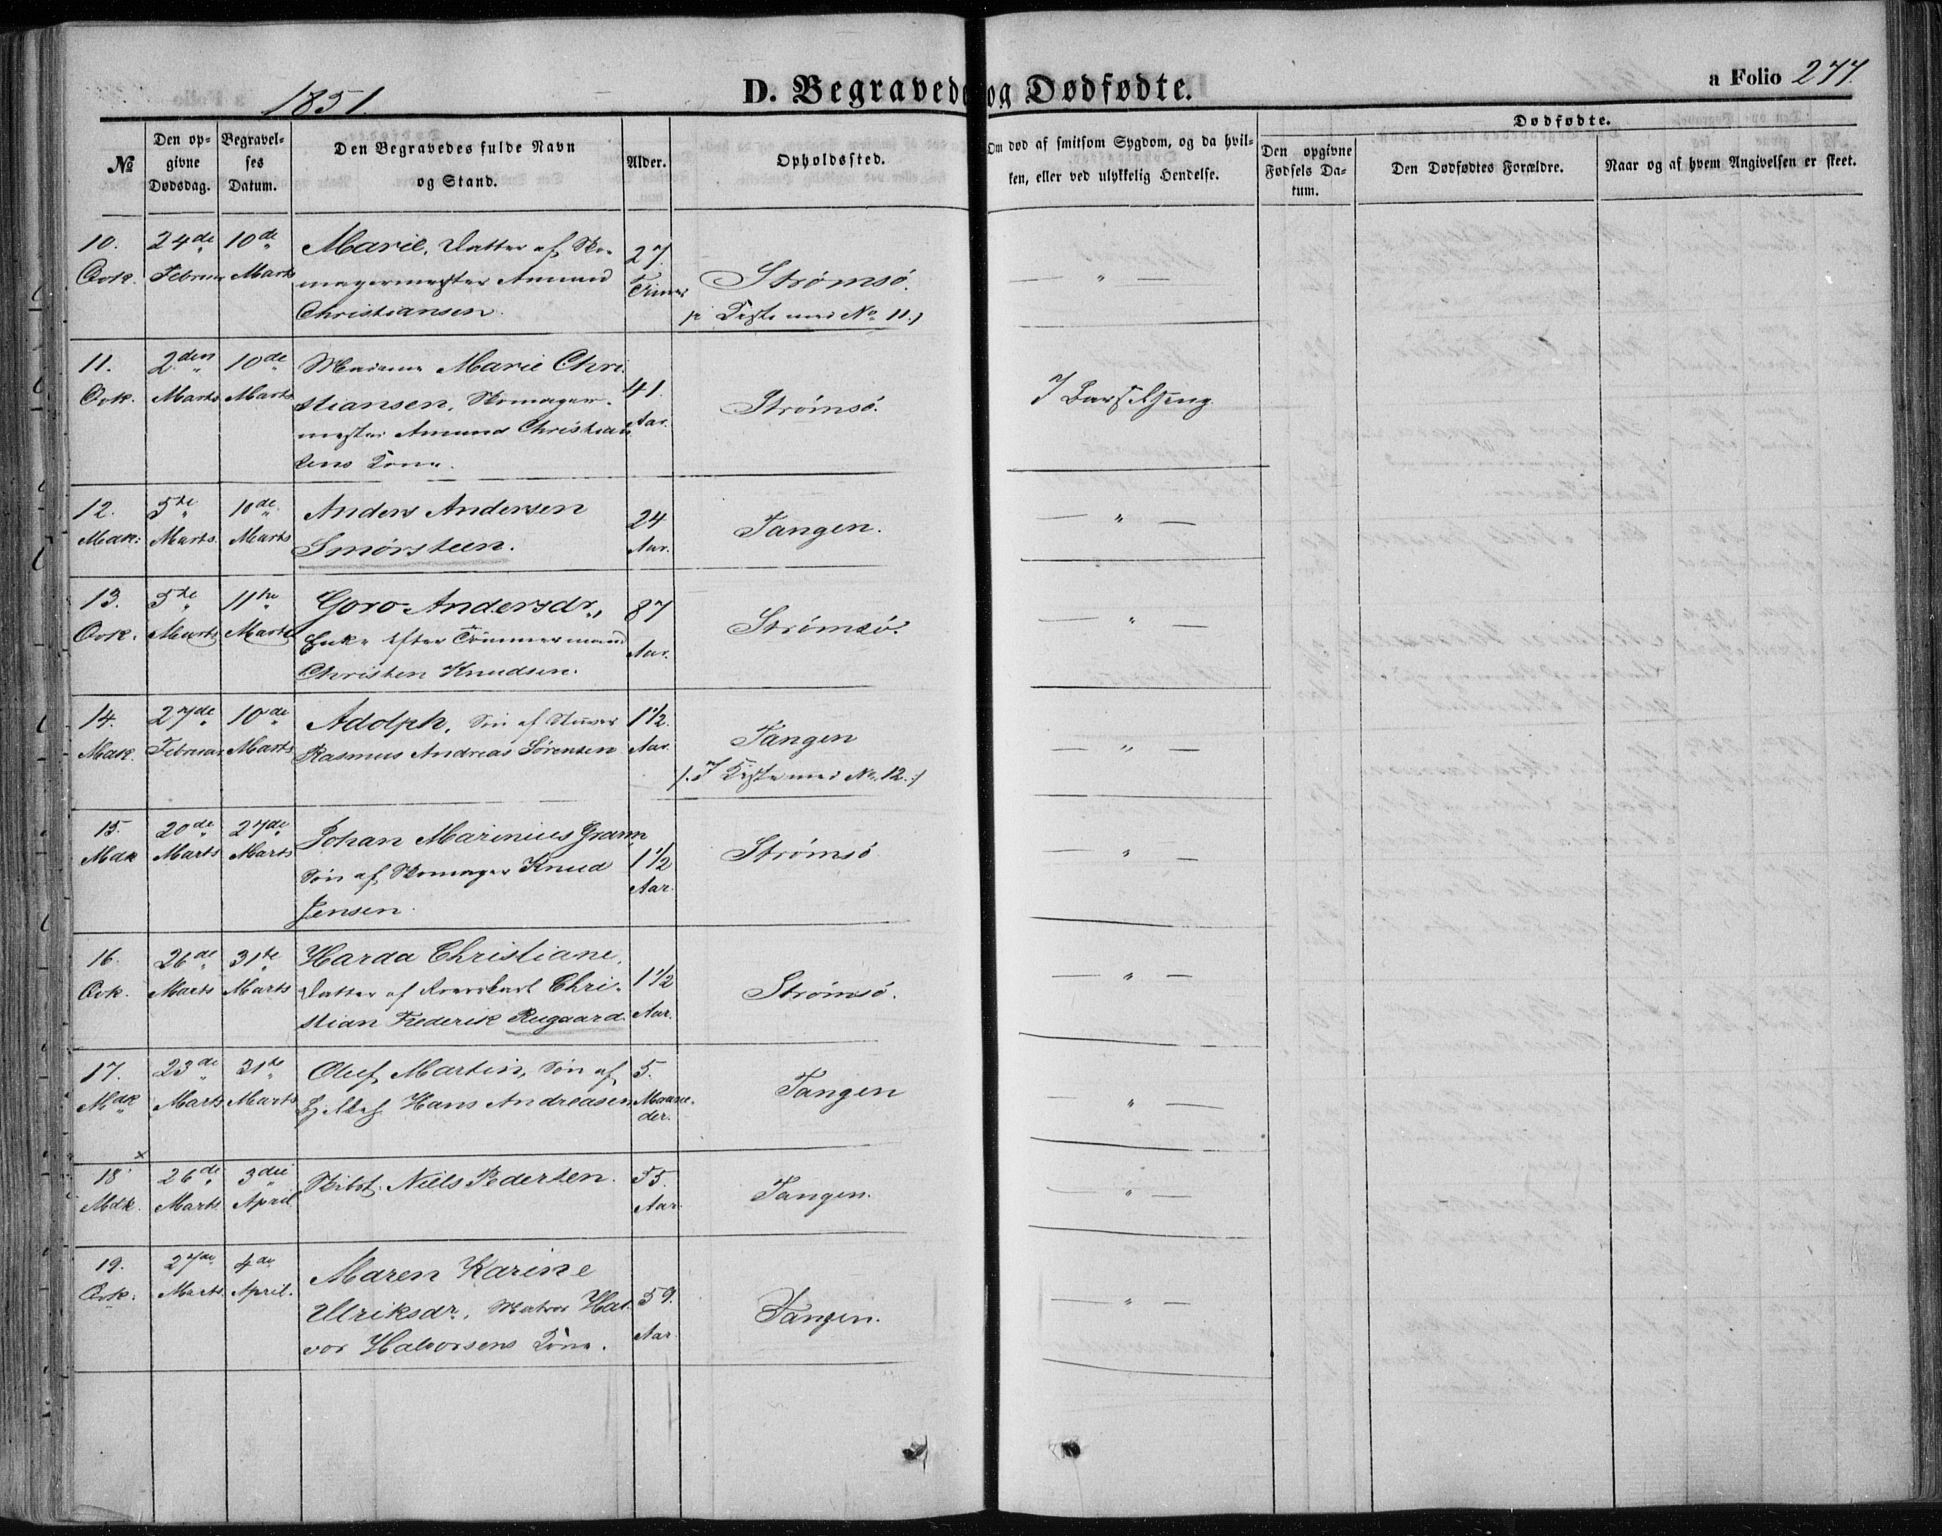 1851.
D. Begravede og Dødfødte.
a Folio 277.
№
Den op-
givne
Dødsdag.
Begravel-
ses
Datum.
Den Begravedes fulde Navn
og Stand.
Alder.
Opholdssted.
Om død af smitsom Sygdom, og da hvil-
ken, eller ved ulykkelig Hendelse.
Dødfødte.
Den opgivne
Fødsels Da-
tum.
Den Dødfødtes Forældre.
Naar og af hvem Angivelsen er skeet.
10.
Qvk.
24de
Februar
10de
Marts
Marie, Datter af Sko-
magermester Amund
Christiansen.
27
Timer
Strømsö.
/: Kiste med No 11:/
— " —
11.
Qvk.
2den
Marts
10de
Marts
Madame Marie Chri
stiansen, Skomager-
mester Amund Christian
sens Kone.
41.
Aar.
Strömsö.
I Barselseng.
12.
Mdk:
5te
Marts.
10de
Marts
Anders Andersen
Smørsteen.
24
Aar.
Tangen.
— " —
13.
Qvk.
5te
Marts
11te
Marts
Goro Andersdr.,
Enke efter Tömmermand
Christen Knudsen.
87
Aar.
Strømsö.
— " —
14.
Mdk.
27de
Februar
10de
Marts
Adolph, Sön af Stuver
Rasmus Andreas Sörensen
1½
Aar.
Tangen
/: I Kiste med No. 12:/
— " —
15.
Mdk
20de
Marts
27de
Marts
Johan Marinius Gram
Sön af Skomager Knud
Jensen.
1½
Aar.
Strømsö
— " —
16.
Qvk.
26de
Marts
31te
Marts
Harda Christiane,
Datter af Chri-
stian Frederik Rugaard.
1½
Aar.
Strömsö.
— " —
17.
Mdk
23de
Marts
31te
Marts
Oluf Martin, Sön af
Hans Andreasen
5.
Maane-
der.
Tangen
— " —
18.
Mdk.
26de
Marts.
3die
April
Skibst. Niels Pedersen.
55.
Aar.
Tangen.
— " —
19.
Qvk.
27de
Marts.
4de
April.
Maren Karine
Ulriksdr., Matros Hal-
vor Halvorsens Kone.
59.
Aar.
Tangen.
— " —